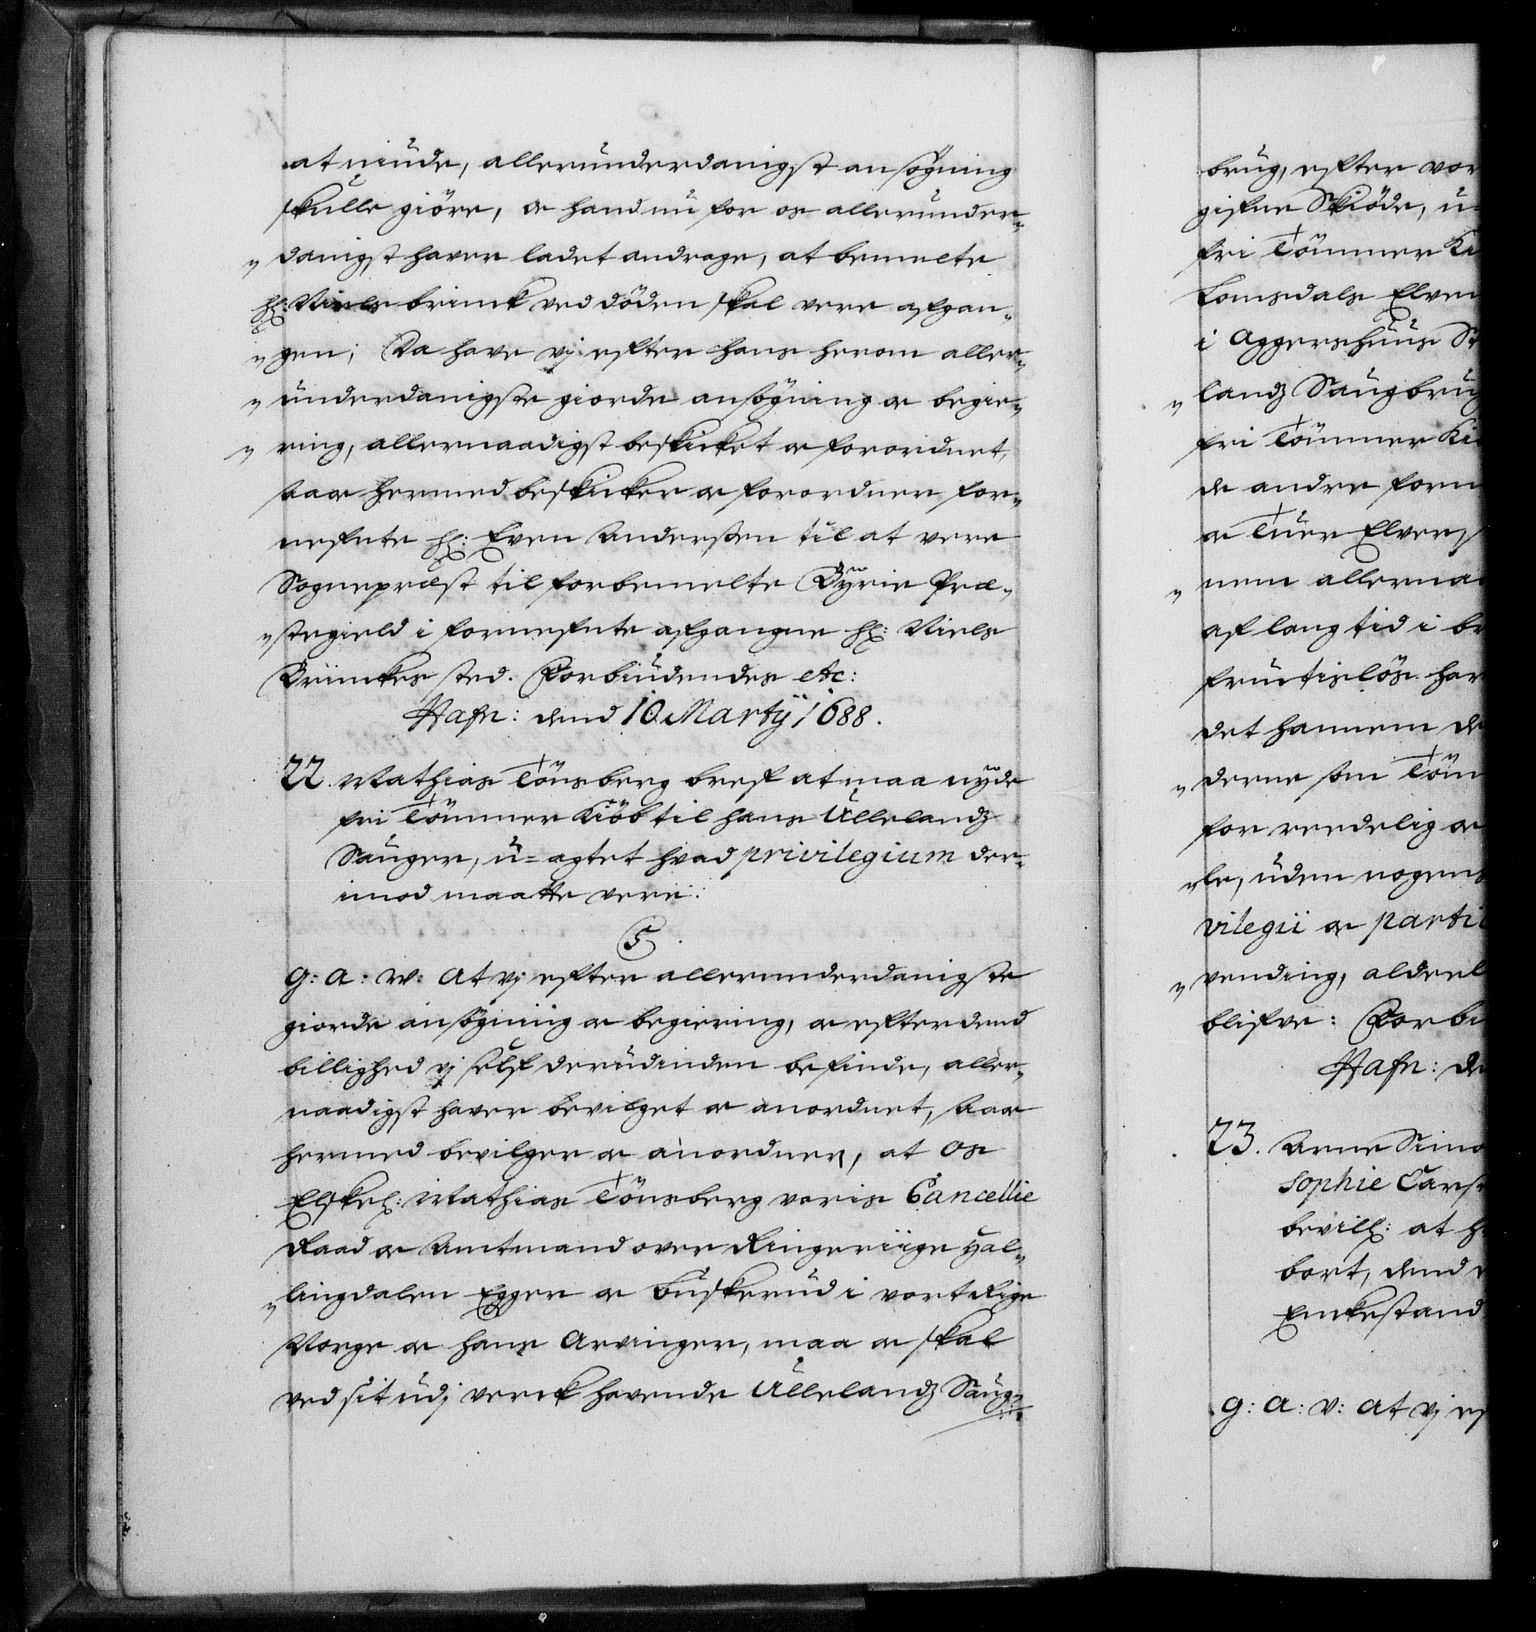 at niude, allerunderdanigst ansögning
skulle giöre, oc hand nu for os allerunder„
„danigst haver ladet andrage, at bemelte
Hr: Niels brinck ved döden skal vere afgan„
„gen; Da have vj efter hans herom aller„
„underdanigste giorde ansögning oc begie„
„ring, allernaadigst beskicket oc forordnet,
saa oc hermed beskicker oc forordner for„
nefnte Hr: Even Andersen til at vere
Sogneprest til forbemelte Byrie Præ„
„stegield i fornefnte afgangne Hr: Niels
Brinckes sted. Forbiudendes etc:
Hafn: dend 10 Martij 1688.
22. Mathias Tönsberg bref at maa nyde
fri Tömmer Kiöb til hans Ullelandz
Sauger, u=agtet hvad privilegium der„
imod maatte vere.
5
G: A: V: At vj efter allerunderdanigste
giorde ansögning oc begiering, oc efter dend
billighed vj self derudinden befinde, aller„
naadigst haver bevilget oc anordnet, saa oc
hermed bevilger oc anordner, at os
Elskel: Mathias Tönsberg voris Cancellie
Raad oc Amtmand over Ringeriige Hal„
„lingdalen Egger oc Buskerud i vort Rige
Norge oc hans Arvinger, maa oc skal
ved sit udj verck havende Ullelandz Saug„
brug, efter vor
gifne Skiöde, u=
fri Tömmer Ki
Lomsdals Elven
i Aggershuus St
„landz Saugbrug
fri Tömmer Ki
de andre forn
oc Tuer Elver
„nem allernaa
af lang tid i br
fructislös har
det hannem de
„derne som Töm
for reedelig oc
„le, uden nogens
vilegii oc parti
„vending, aldeel
blifve: Forbi
Hafn: de
23. Arne Simo
Sophie Carst
bevill: at h
bort, dend
Enckestand
G: A: V: At vj ef